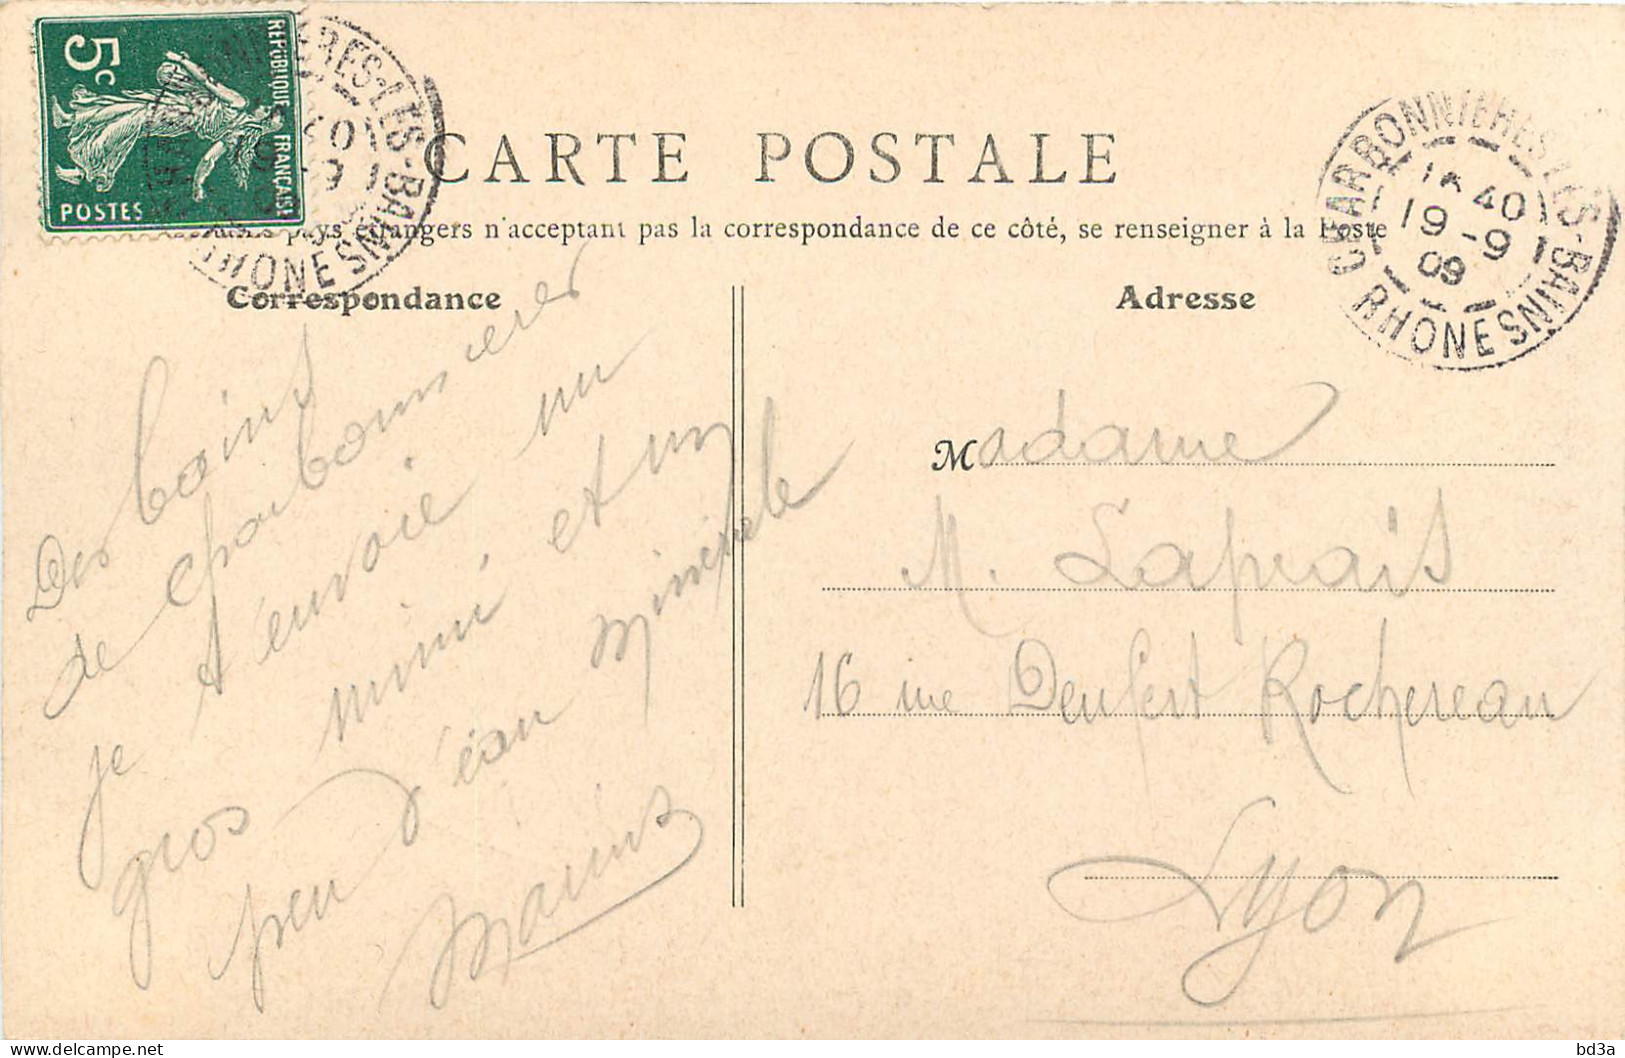 5c
REPUBLIQUE FRANÇAISE
POSTES
CARTE POSTALE
pays étrangers n'acceptant pas la correspondance de ce côté, se renseigner à la Poste
CHARBONNIERES-LES-BAINS
40
19 -9
09
RHONE
Correspondance
Des bains
de charbonnieres
je t'envoie un
gros mimi et un
peu d'eau minerale
Marius
Adresse
Madame
M. Laprais
16 rue Denfert Rochereau
Lyon
bd3a